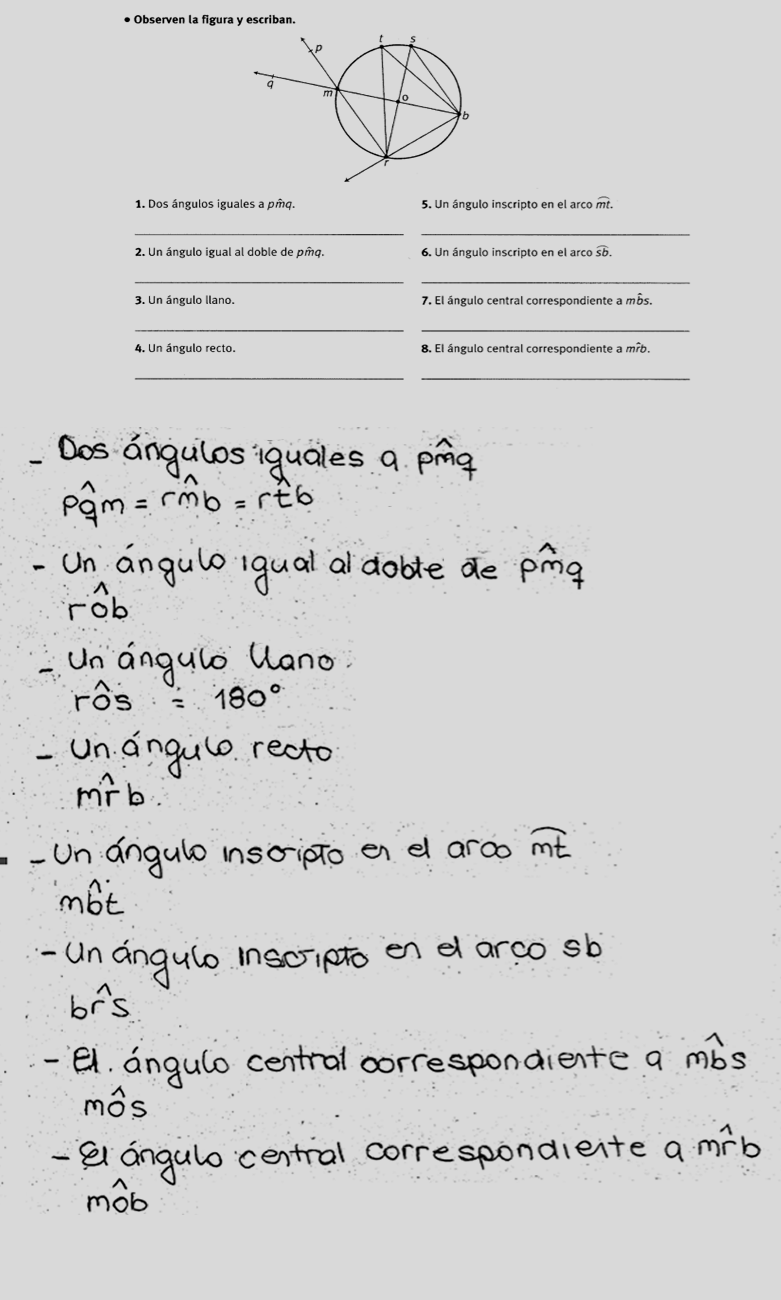 • Observen la figura y escriban.
t s
p
q
m
o
b
r
1. Dos ángulos iguales a pm̂q.
5. Un ángulo inscripto en el arco m͡t.
2. Un ángulo igual al doble de pm̂q.
6. Un ángulo inscripto en el arco s͡b.
3. Un ángulo llano.
7. El ángulo central correspondiente a mb̂s.
4. Un ángulo recto.
8. El ángulo central correspondiente a mr̂b.
- Dos ángulos iguales a pm̂q
pq̂m = rm̂b = rt̂b
- Un ángulo igual al doble de pm̂q
rôb
- Un ángulo llano
rôs = 180°
- Un ángulo recto
mr̂b
- Un ángulo inscripto en el arco m͡t
mb̂t
- Un ángulo inscripto en el arco sb
br̂s
- El ángulo central correspondiente a mb̂s
môs
- El ángulo central correspondiente a mr̂b
môb